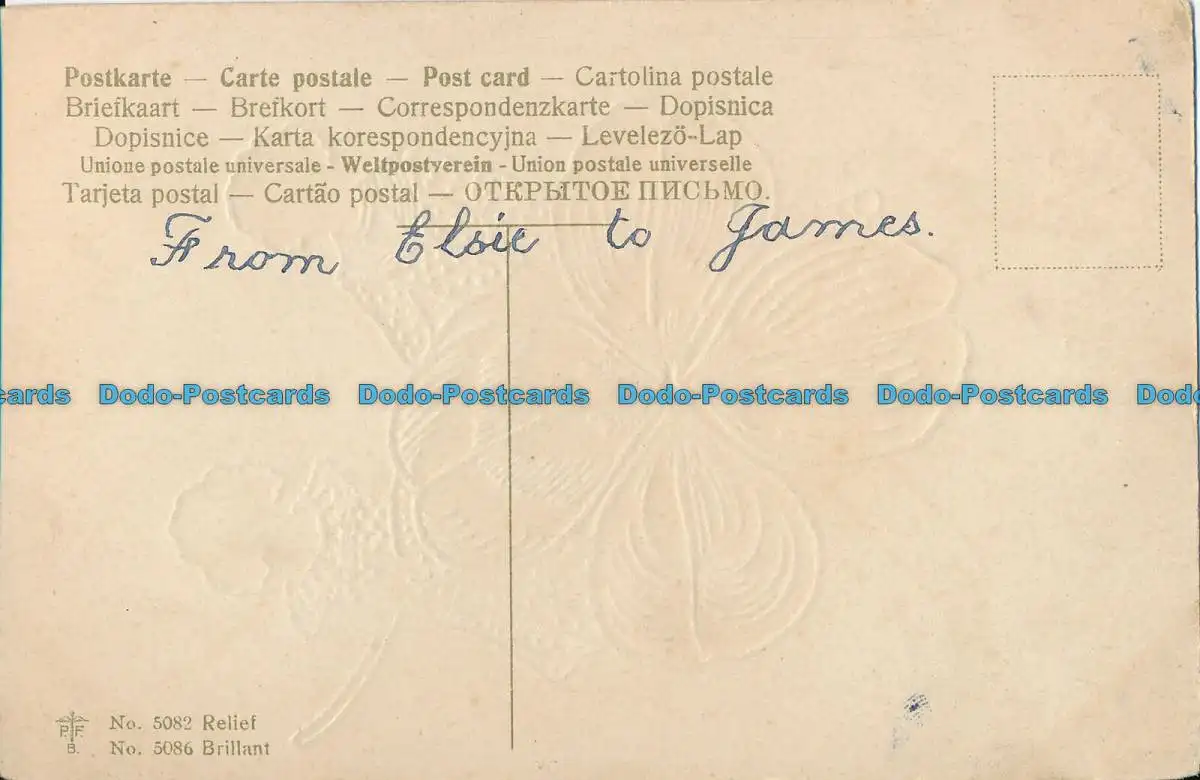 Postkarte — Carte postale — Post card — Cartolina postale
Briefkaart — Brefkort — Correspondenzkarte — Dopisnica
Dopisnice — Karta korespondencyjna — Levelezö-Lap
Unione postale universale - Weltpostverein - Union postale universelle
Tarjeta postal — Cartão postal — ОТКРЫТОЕ ПИСЬМО.
From Elsie to James.
cards Dodo-Postcards Dodo-Postcards Dodo-Postcards Dodo-Postcards Dodo
P.F.
B.
No. 5082 Relief
No. 5086 Brillant